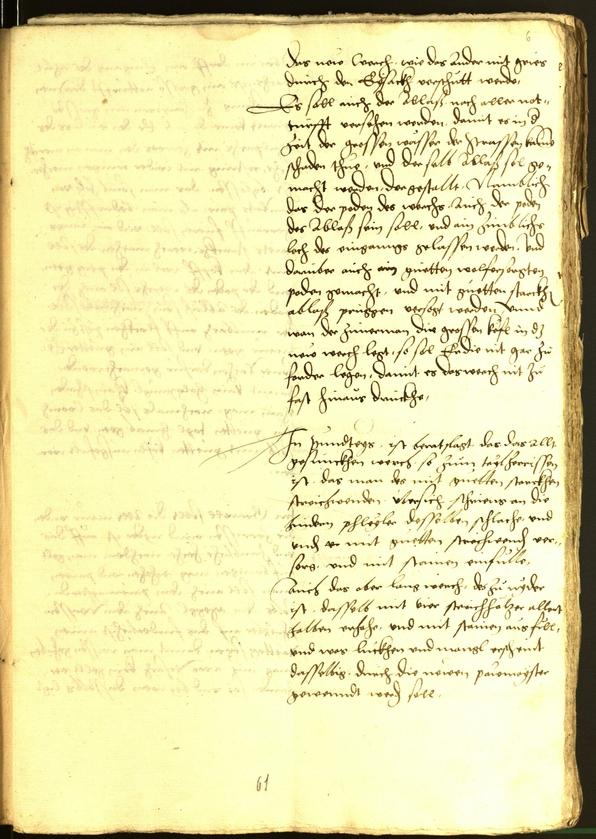 6
das new Werch, wie das ander mit gries
durch den Eysackh verschütt werde.
Es soll auch der Ablaß nach aller not-
turfft versehen werden, damit es in d
Zeit der grossen wasser der strassen kain
schaden thue, und derselb Ablaß sol ge-
macht werden, dergestallt. Namblich
das der poden des werchs, auch der poden
des Ablaß sein soll, und ain zimblichs
loch der eingangs gelassen werden. Und
darüber auch ein guetten
poden gemacht, und mit guetten starckhen
ablaß pruggen versorgt werden. Unnd
wan der Zimerman die grossen in dz
new werch legt, so sol Er die nit gar zu
legen, damit es das werch nit zu
fast hinaus druckhe.
In pundtegs, ist beratslagt, das das allt
gesunckhen werch, so zum tayl zerrissen
ist, das man des mit guetten starckhen
an die
hindern desselben schlache, und
und mit guetten ver-
sorg, und mit stainen einfülle,
Auch das aber lang werch, des zu nyder
ist, dasselb mit vier streichhölzer allent
halben erhöhe, und mit stainen ausfüll,
und was luckhen und mangl
dasselbig, durch die newen pawmayster
gewenndt werd soll.
61